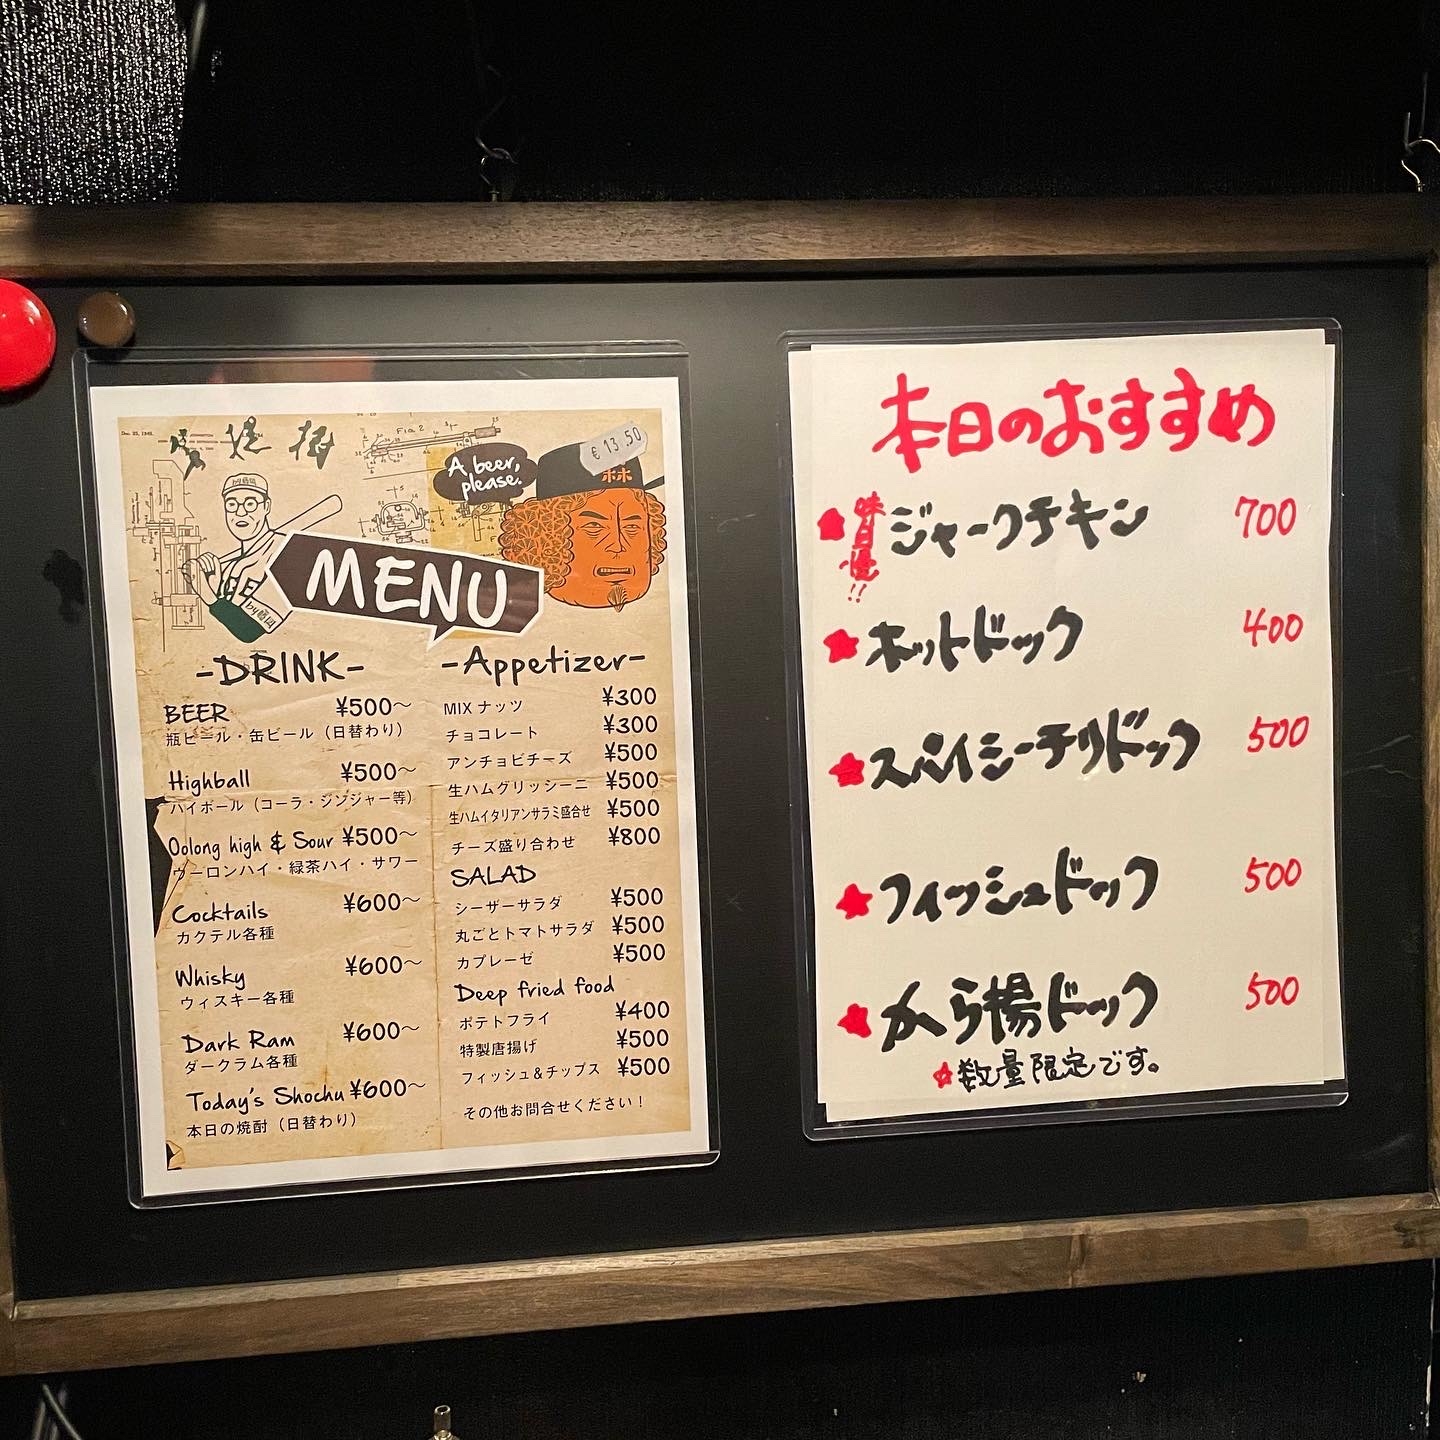 A beer,
please.
€ 13.50
MENU
-DRINK-
BEER ¥500〜
瓶ビール・缶ビール（日替わり）
Highball ¥500〜
ハイボール（コーラ・ジンジャー等）
Oolong high & Sour ¥500〜
ウーロンハイ・緑茶ハイ・サワー
Cocktails ¥600〜
カクテル各種
Whisky ¥600〜
ウィスキー各種
Dark Ram ¥600〜
ダークラム各種
Today's Shochu ¥600〜
本日の焼酎（日替わり）
-Appetizer-
MIX ナッツ ¥300
チョコレート ¥300
アンチョビチーズ ¥500
生ハムグリッシーニ ¥500
生ハムイタリアンサラミ盛合せ ¥500
チーズ盛り合わせ ¥800
SALAD
シーザーサラダ ¥500
丸ごとトマトサラダ ¥500
カプレーゼ ¥500
Deep fried food
ポテトフライ ¥400
特製唐揚げ ¥500
フィッシュ＆チップス ¥500
その他お問合せください！
本日のおすすめ
★味自慢!! ジャークチキン 700
★ホットドック 400
★スパイシーチリドック 500
★フィッシュドック 500
★から揚ドック 500
☆数量限定です。